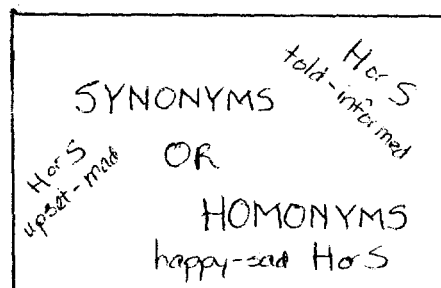 H or S
told-informed
SYNONYMS
OR
HOMONYMS
H or S
upset-mad
happy-sad H or S